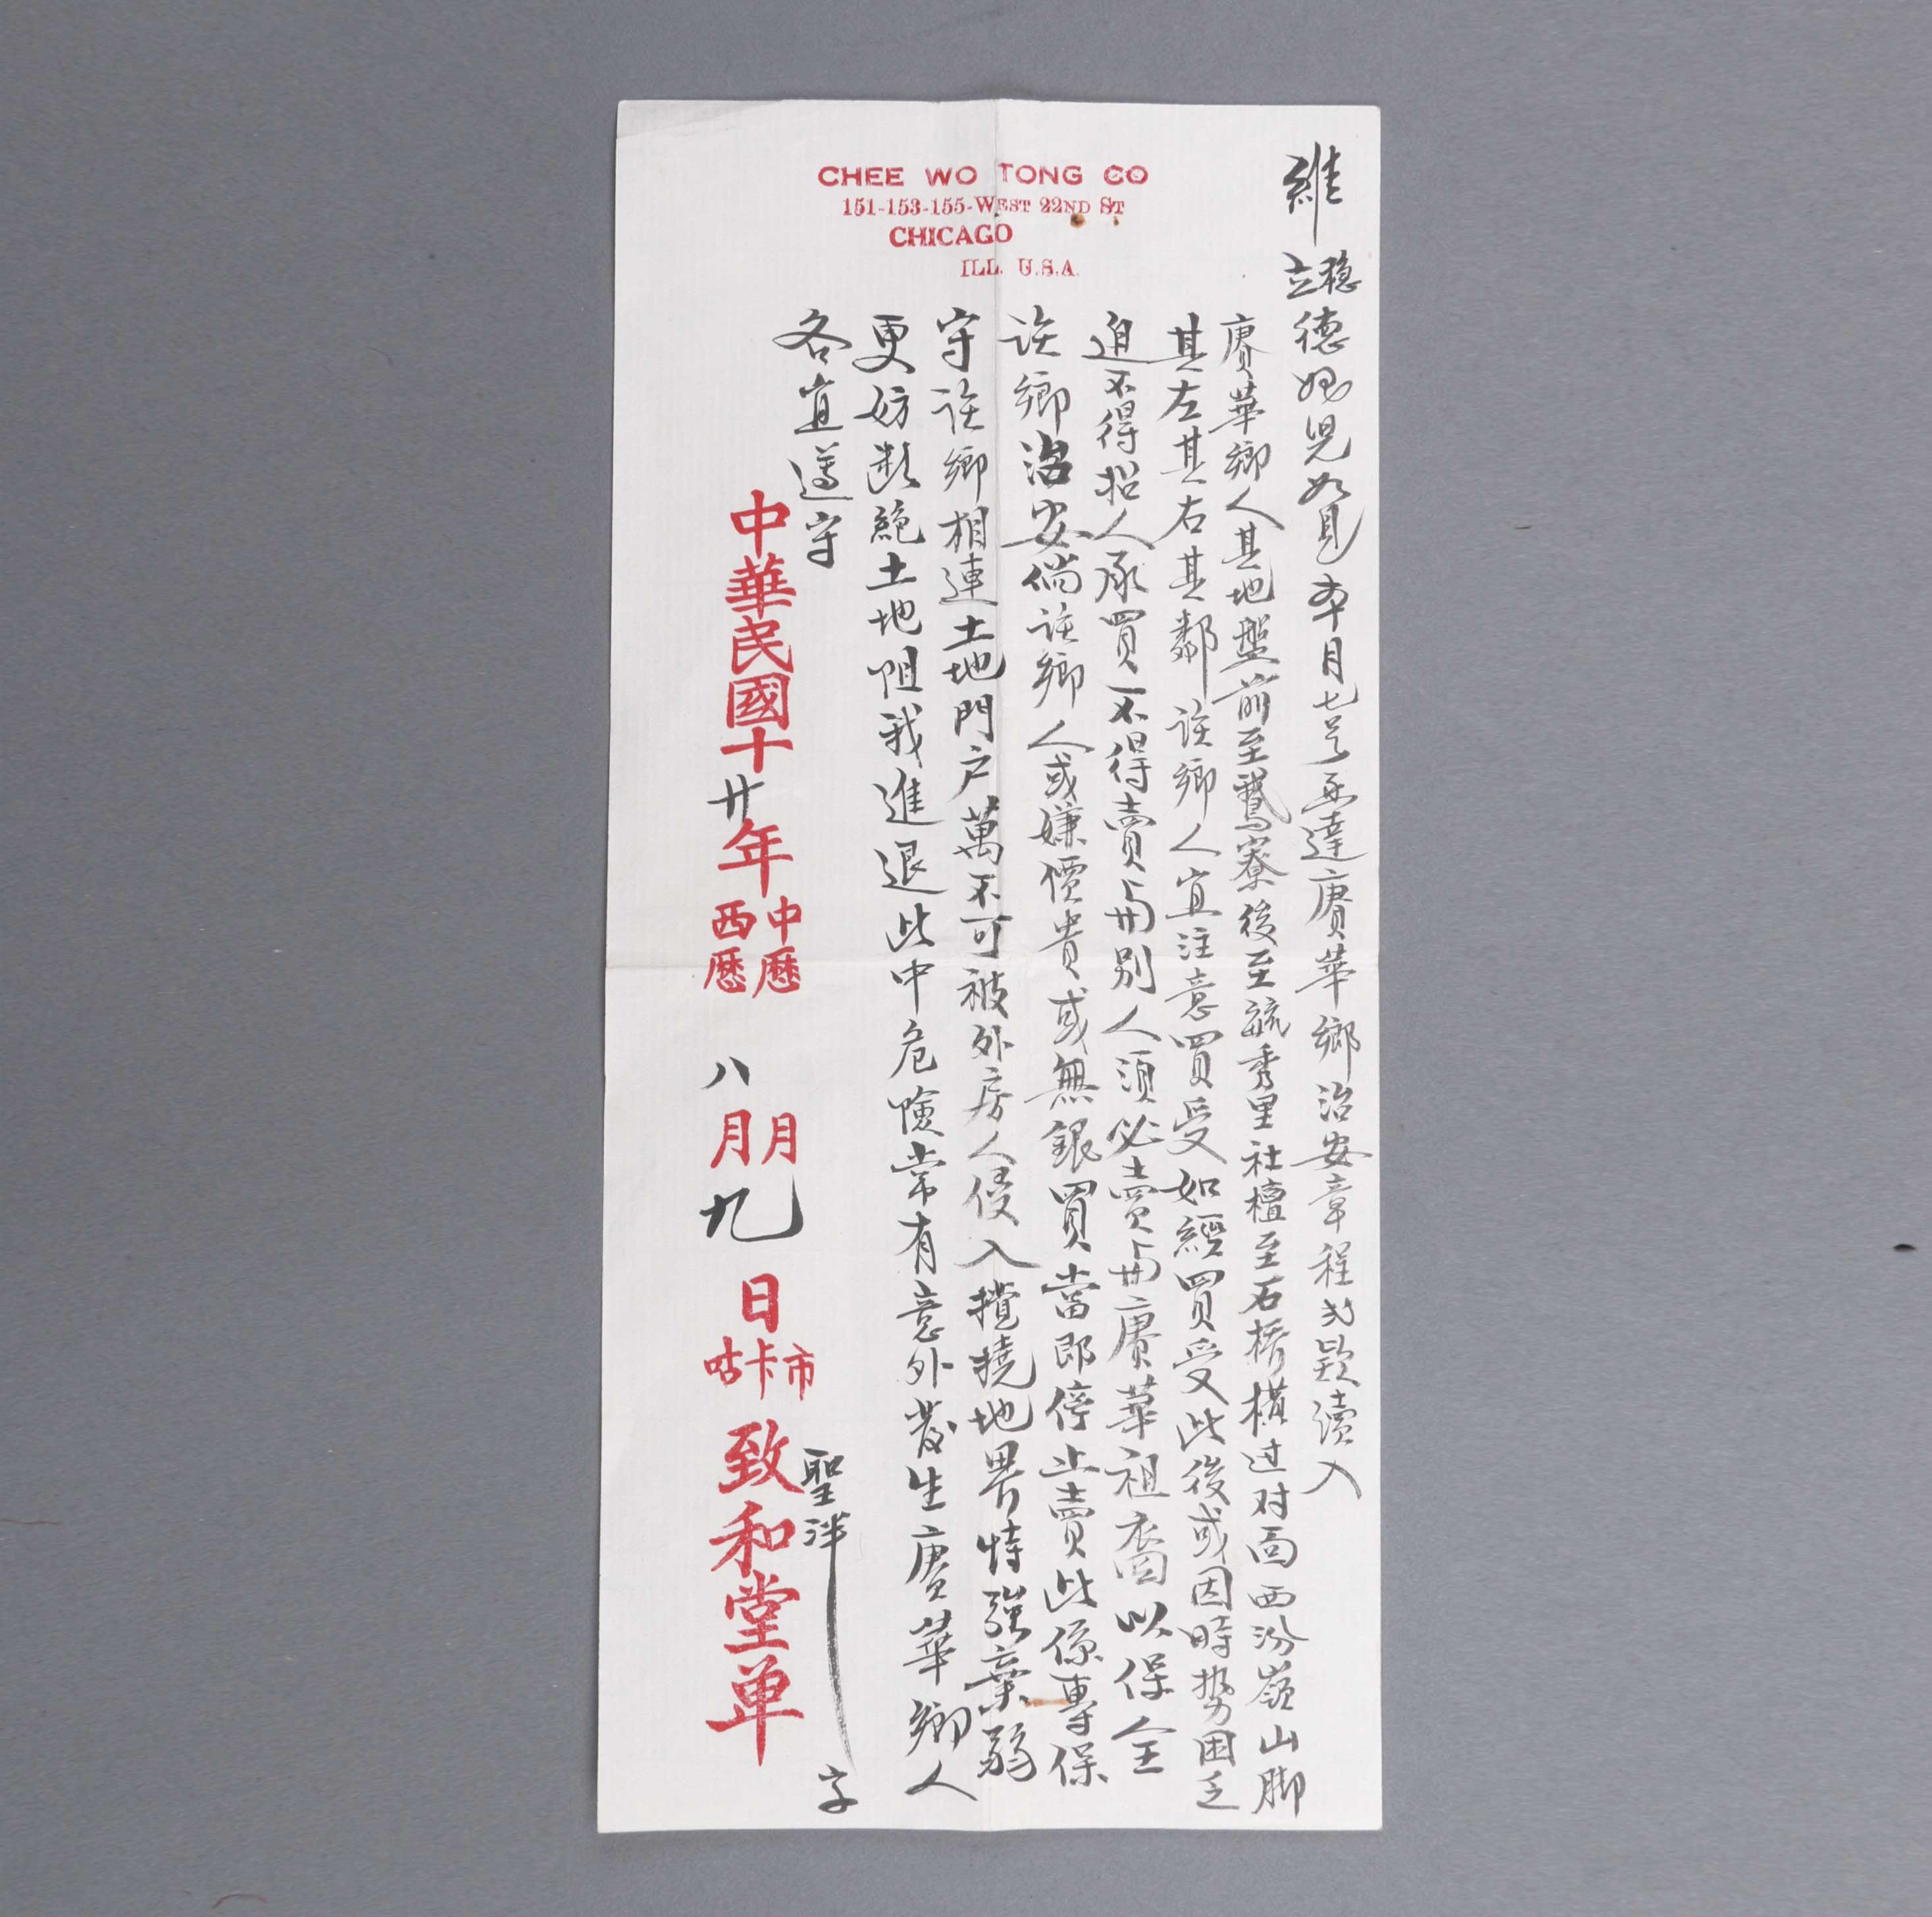 CHEE WO TONG CO
151-153-155-WEST 22ND ST
CHICAGO
ILL. U.S.A.
維
立穩德媳兒如見本月七号函達賡華鄉治安章程式欵續入
賡華鄉人其地盤前至鵝寮後至毓秀里社檀至石橋橫过对面西汾嶺山脚
其左其右其鄰該鄉人宜注意買受如經買受此後或因時势困乏
迫不得招人承買不得賣與別人須必賣與賡華祖裔以保全
該鄉治安倘該鄉人或嫌價貴或無銀買當即停止賣此係專保
守該鄉相連土地門户萬不可被外房人侵入攪撓地界恃強棄弱
更妨断絕土地阻我進退此中危險常有意外發生賡華鄉人
各宜遵守
聖洋 字
中華民國十廿年中歷西歷 八月月九日咭卡市致和堂单